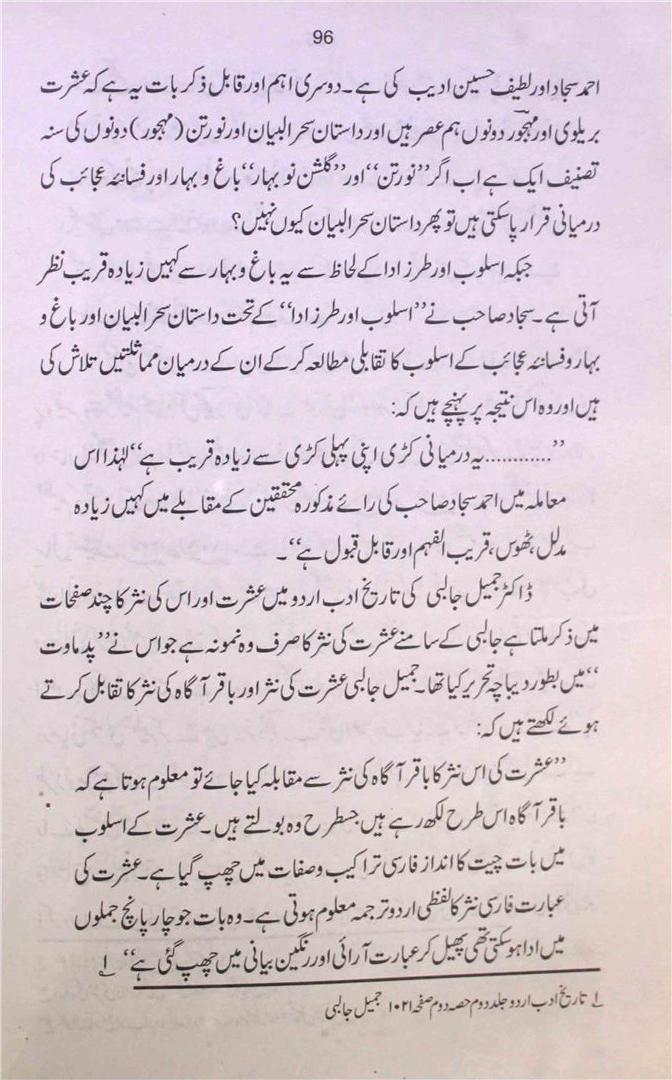 96
احمد سجاد اور لطیف حسین ادیب کی ہے۔ دوسری اہم اور قابل ذکر بات یہ ہے کہ عشرت
بریلوی اور مہجور دونوں ہم عصر ہیں اور داستان سحر البیان اور نورتن (مہجور) دونوں کی سنہ
تصنیف ایک ہے اب اگر ”نورتن“ اور ”گلشن نو بہار“ باغ و بہار اور فسانۂ عجائب کی
درمیانی قرار پا سکتی ہیں تو پھر داستان سحر البیان کیوں نہیں؟
جبکہ اسلوب اور طرز ادا کے لحاظ سے یہ باغ و بہار سے کہیں زیادہ قریب نظر
آتی ہے۔ سجاد صاحب نے ”اسلوب اور طرز ادا“ کے تحت داستان سحر البیان اور باغ و
بہار و فسانۂ عجائب کے اسلوب کا تقابلی مطالعہ کر کے ان کے درمیان مماثلتیں تلاش کی
ہیں اور وہ اس نتیجہ پر پہنچے ہیں کہ:
”............یہ درمیانی کڑی اپنی پہلی کڑی سے زیادہ قریب ہے“ لہٰذا اس
معاملہ میں احمد سجاد صاحب کی رائے مذکورہ محققین کے مقابلے میں کہیں زیادہ
مدلل، ٹھوس، قریب الفہم اور قابل قبول ہے“۔
ڈاکٹر جمیل جالبی کی تاریخ ادب اردو میں عشرت اور اس کی نثر کا چند صفحات
میں ذکر ملتا ہے جالبی کے سامنے عشرت کی نثر کا صرف وہ نمونہ ہے جو اس نے ”پدماوت
“ میں بطور دیباچہ تحریر کیا تھا۔ جمیل جالبی عشرت کی نثر اور باقر آگاہ کی نثر کا تقابل کرتے
ہوئے لکھتے ہیں کہ:
”عشرت کی اس نثر کا باقر آگاہ کی نثر سے مقابلہ کیا جائے تو معلوم ہوتا ہے کہ
باقر آگاہ اس طرح لکھ رہے ہیں جسطرح وہ بولتے ہیں۔ عشرت کے اسلوب
میں بات چیت کا انداز فارسی تراکیب وصفات میں چھپ گیا ہے۔ عشرت کی
عبارت فارسی نثر کا لفظی اردو ترجمہ معلوم ہوتی ہے۔ وہ بات جو چار پانچ جملوں
میں ادا ہو سکتی تھی پھیل کر عبارت آرائی اور رنگین بیانی میں چھپ گئی ہے“ ۱؎
۱؎ تاریخ ادب اردو جلد دوم حصہ دوم صفحہ ۱۰۲۱ جمیل جالبی